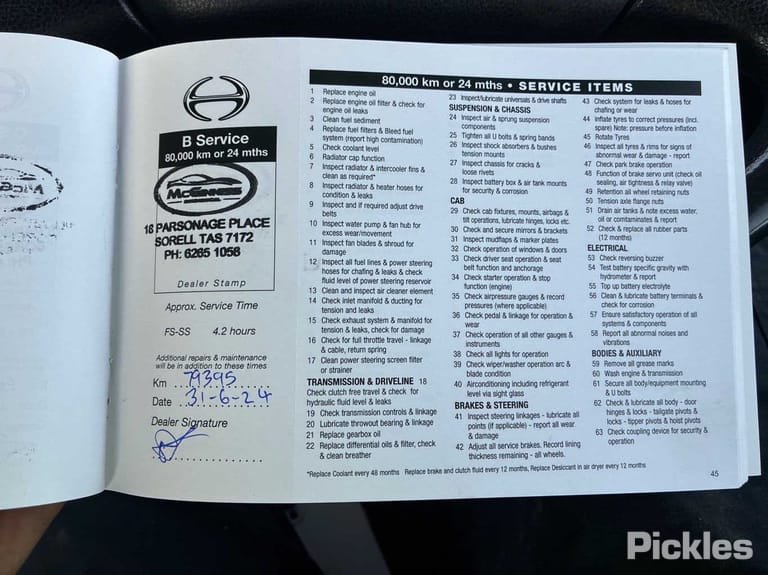 B Service
80,000 km or 24 mths
McGINNESS
18 PARSONAGE PLACE
SORELL TAS 7172
PH: 6265 1056
Dealer Stamp
Approx. Service Time
FS-SS 4.2 hours
Additional repairs & maintenance
will be in addition to these times
Km 79395
Date 31-6-24
Dealer Signature
80,000 km or 24 mths • SERVICE ITEMS
1 Replace engine oil
2 Replace engine oil filter & check for
engine oil leaks
3 Clean fuel sediment
4 Replace fuel filters & Bleed fuel
system (report high contamination)
5 Check coolant level
6 Radiator cap function
7 Inspect radiator & intercooler fins &
clean as required*
8 Inspect radiator & heater hoses for
condition & leaks
9 Inspect and if required adjust drive
belts
10 Inspect water pump & fan hub for
excess wear/movement
11 Inspect fan blades & shroud for
damage
12 Inspect all fuel lines & power steering
hoses for chafing & leaks & check
fluid level of power steering reservoir
13 Clean and inspect air cleaner element
14 Check inlet manifold & ducting for
tension and leaks
15 Check exhaust system & manifold for
tension & leaks, check for damage
16 Check for full throttle travel - linkage
& cable, return spring
17 Clean power steering screen filter
or strainer
TRANSMISSION & DRIVELINE 18
Check clutch free travel & check for
hydraulic fluid level & leaks
19 Check transmission controls & linkage
20 Lubricate throwout bearing & linkage
21 Replace gearbox oil
22 Replace differential oils & filter, check
& clean breather
23 Inspect/lubricate universals & drive shafts
SUSPENSION & CHASSIS
24 Inspect air & sprung suspension
components
25 Tighten all U bolts & spring bands
26 Inspect shock absorbers & bushes
tension mounts
27 Inspect chassis for cracks &
loose rivets
28 Inspect battery box & air tank mounts
for security & corrosion
CAB
29 Check cab fixtures, mounts, airbags &
tilt operations, lubricate hinges, locks etc.
30 Check and secure mirrors & brackets
31 Inspect mudflaps & marker plates
32 Check operation of windows & doors
33 Check driver seat operation & seat
belt function and anchorage
34 Check starter operation & stop
function (engine)
35 Check airpressure gauges & record
pressures (where applicable)
36 Check pedal & linkage for operation &
wear
37 Check operation of all other gauges &
instruments
38 Check all lights for operation
39 Check wiper/washer operation arc &
blade condition
40 Airconditioning including refrigerant
level via sight glass
BRAKES & STEERING
41 Inspect steering linkages - lubricate all
points (if applicable) - report all wear
& damage
42 Adjust all service brakes. Record lining
thickness remaining - all wheels.
43 Check system for leaks & hoses for
chafing or wear
44 Inflate tyres to correct pressures (incl.
spare) Note: pressure before inflation
45 Rotate Tyres
46 Inspect all tyres & rims for signs of
abnormal wear & damage - report
47 Check park brake operation
48 Function of brake servo unit (check oil
sealing, air tightness & relay valve)
49 Retention all wheel retaining nuts
50 Tension axle flange nuts
51 Drain air tanks & note excess water,
oil or comtaminates & report
52 Check & replace all rubber parts
(12 months)
ELECTRICAL
53 Check reversing buzzer
54 Test battery specific gravity with
hydrometer & report
55 Top up battery electrolyte
56 Clean & lubricate battery terminals &
check for corrosion
57 Ensure satisfactory operation of all
systems & components
58 Report all abnormal noises and
vibrations
BODIES & AUXILIARY
59 Remove all grease marks
60 Wash engine & transmission
61 Secure all body/equipment mounting
& U bolts
62 Check & lubricate all body - door
hinges & locks - tailgate pivots &
locks - tipper pivots & hoist pivots
63 Check coupling device for security &
operation
*Replace Coolant every 48 months Replace brake and clutch fluid every 12 months, Replace Desiccant in air dryer every 12 months
45
Pickles